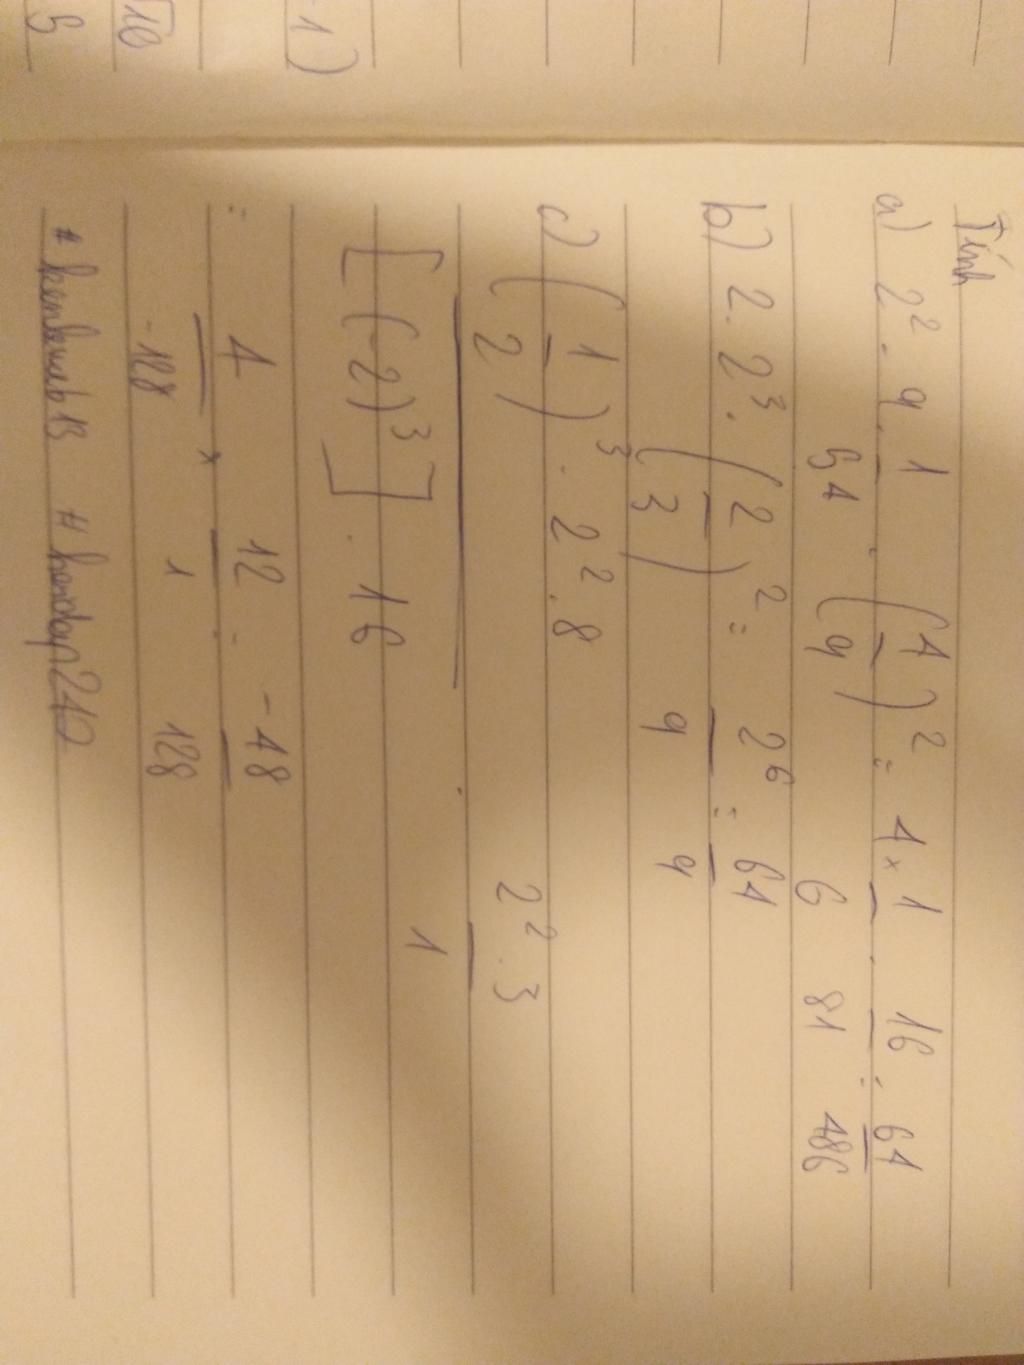 Tính
a) 2² . 9 . 1/54 . (4/9)² = 4 × 1/6 . 16/81 = 64/486
b) 2 . 2³ . (2/3)² = 2⁶/9 = 64/9
c) (1/2)³ . 2² . 8 / [(-2)³] . 16 . 2² . 3/1
= 4/-128 × 12/1 = -48/128
-1)
√10
5